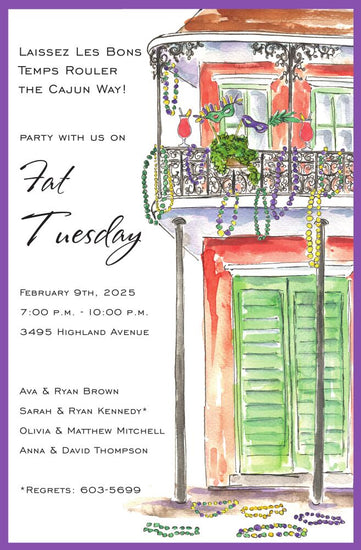 Laissez Les Bons
Temps Rouler
the Cajun Way!
party with us on
Fat
Tuesday
February 9th, 2025
7:00 p.m. - 10:00 p.m.
3495 Highland Avenue
Ava & Ryan Brown
Sarah & Ryan Kennedy*
Olivia & Matthew Mitchell
Anna & David Thompson
*Regrets: 603-5699